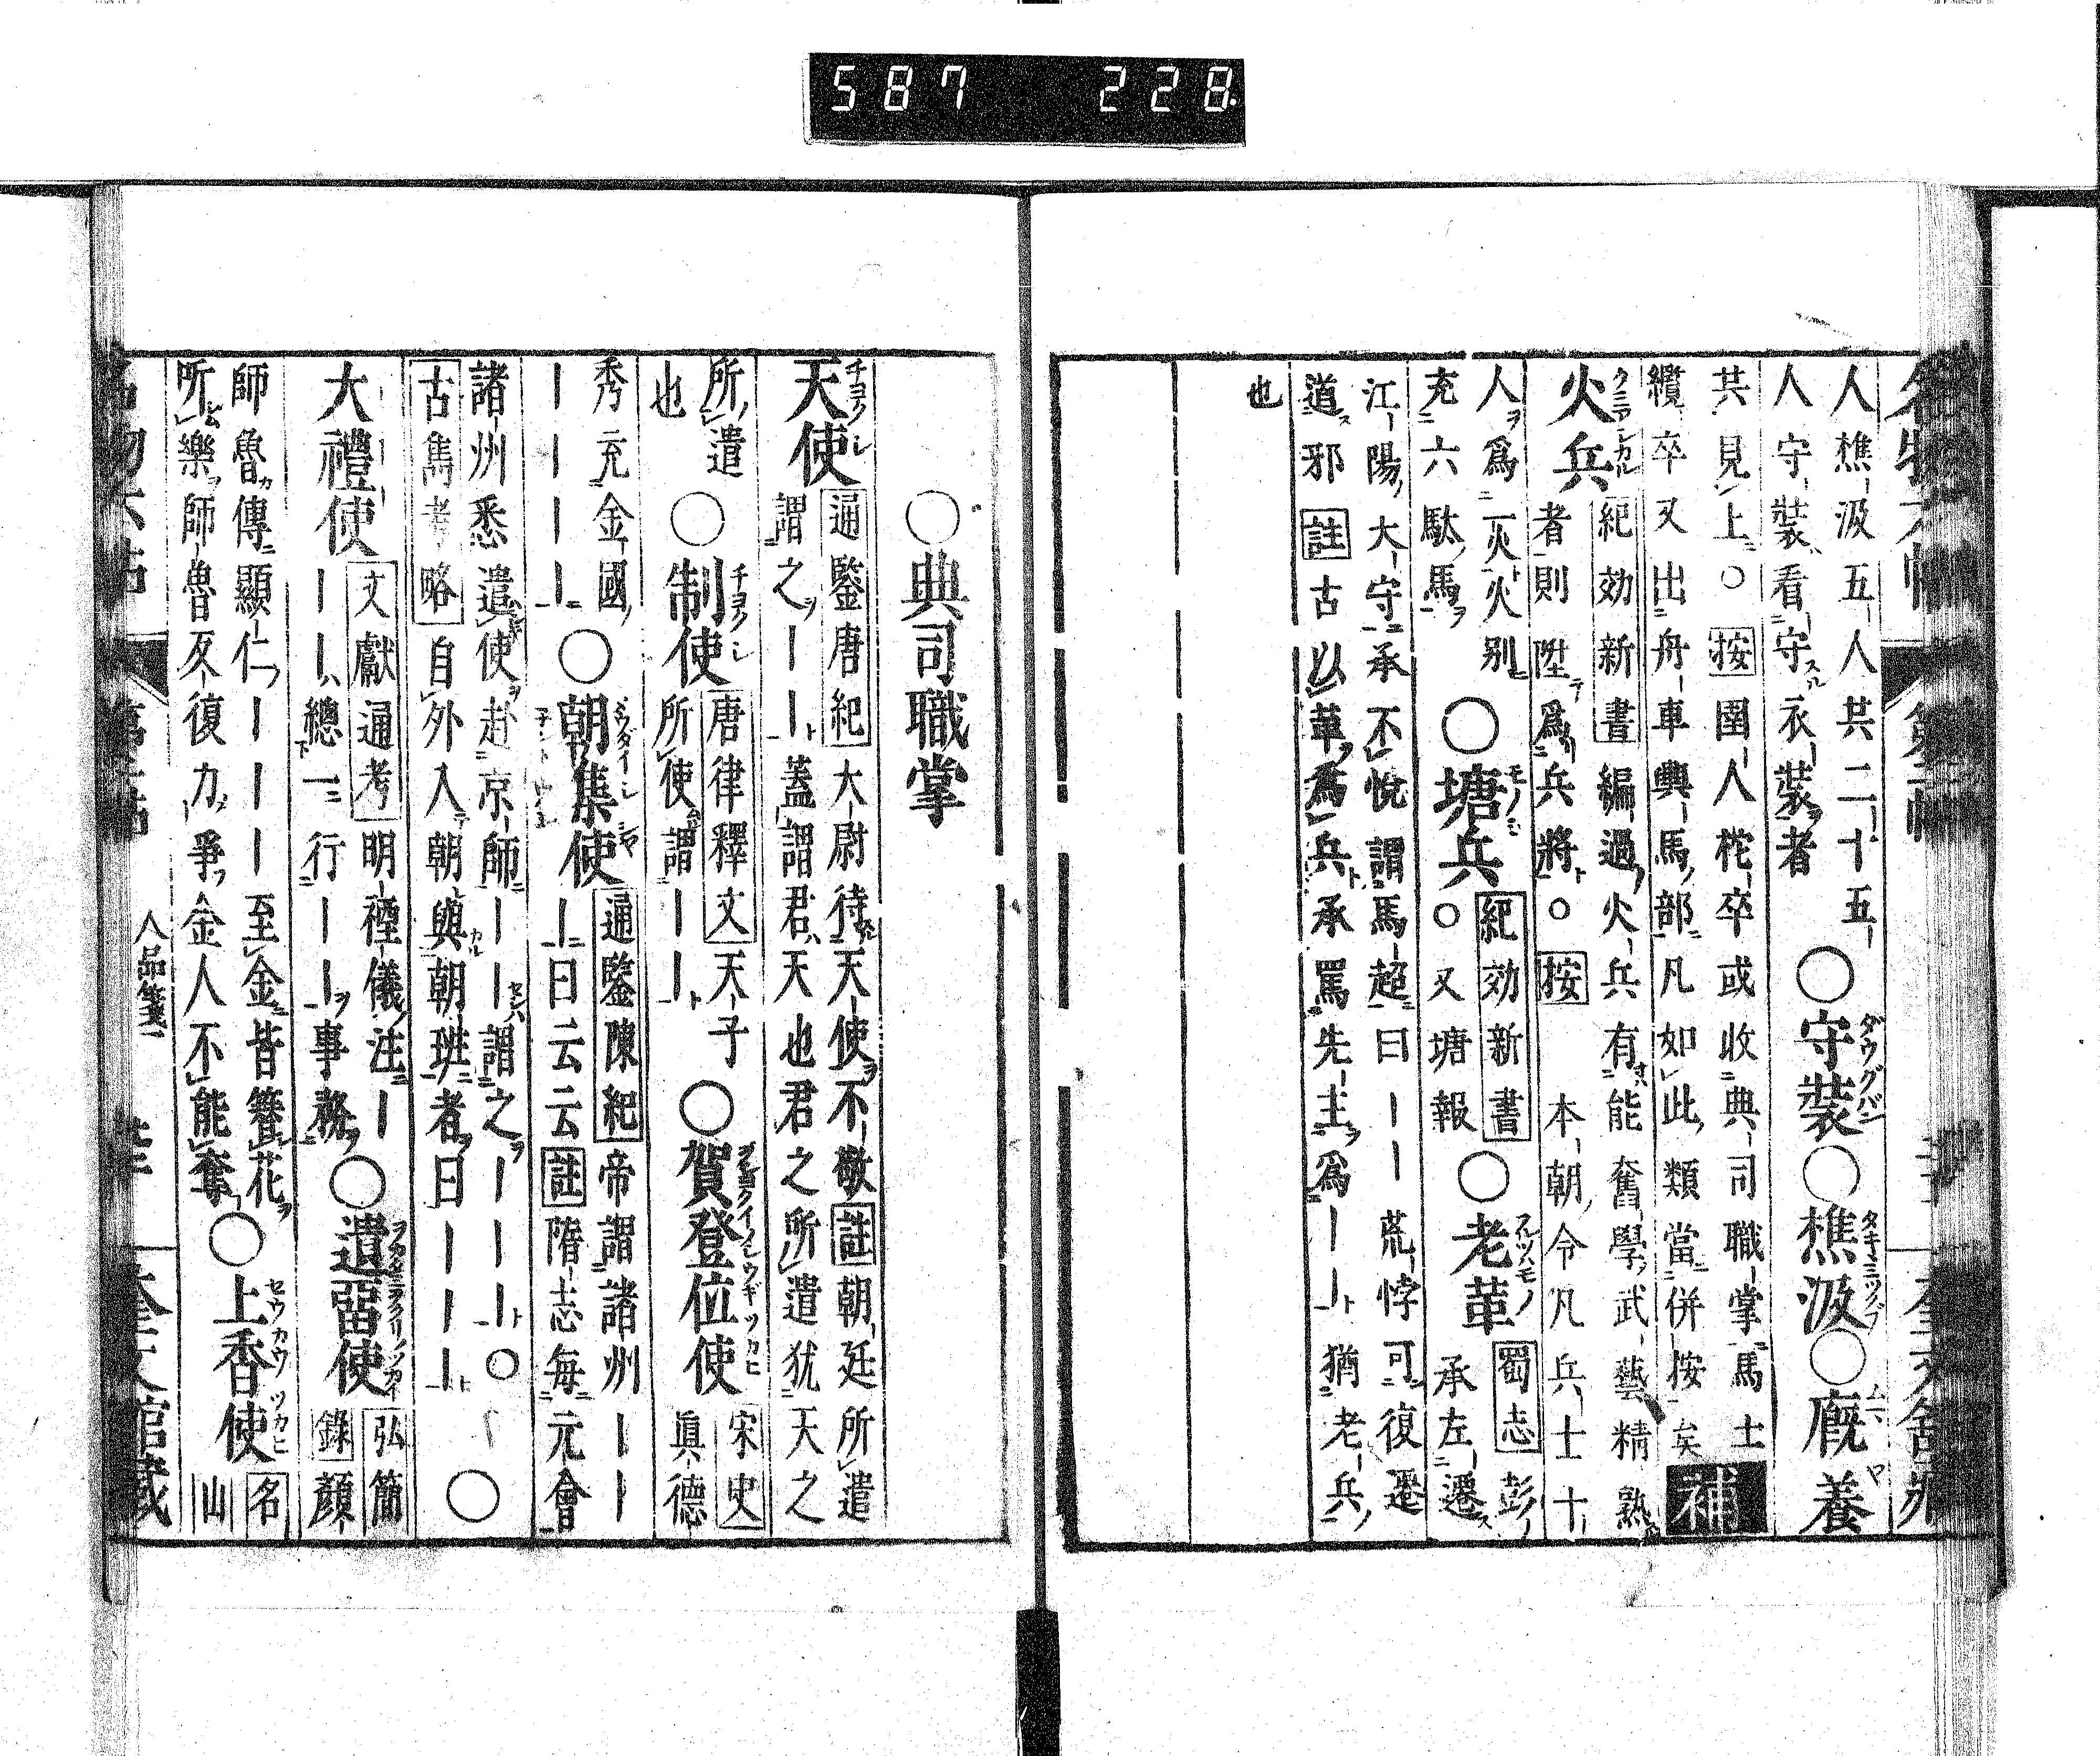 587 228
人樵汲五人共二十五
人守裝看守衣裝者
○守裝○樵汲○廐養
共見上○按圉人控卒或收典司職掌馬士
纜卒又出舟車輿馬部凡如此類當併按矣
補
火兵
紀効新書編過火兵有能奮學武藝精熟
者則陞爲兵將○按本朝令凡兵士十
人爲一火火別
充六駄馬
○塘兵
紀効新書
○又塘報
○老革
蜀志彭
承左遷
江陽太守承不悅謂馬超曰ーー荒悖可復
道邪註古以革爲兵承罵先主爲ーー猶老兵
也
○典司職掌
天使
通鑒唐紀大尉待天使不敬註朝廷所遣
謂之ーー蓋謂君天也君之所遣犹天之
所遣
也
○制使
唐律釋文天子
所使謂ーー
○賀登位使
宋史
眞德
秀充金國
ーーーー
○朝集使
通鑒陳紀帝謂諸州ーー
ー曰云云註隋志每元會
諸州悉遣使赴京師ーー謂之ーーー○
古雋考略自外入朝與朝班者曰ーーーー
○
大禮使
文獻通考明禋儀注ー
ーー總一行ーー事務
○遺留使
弘簡
錄顏
師魯傳顯仁ーーー至金皆簪花
所樂師魯反復力爭金人不能奪
○上香使
名
山
人品箋一